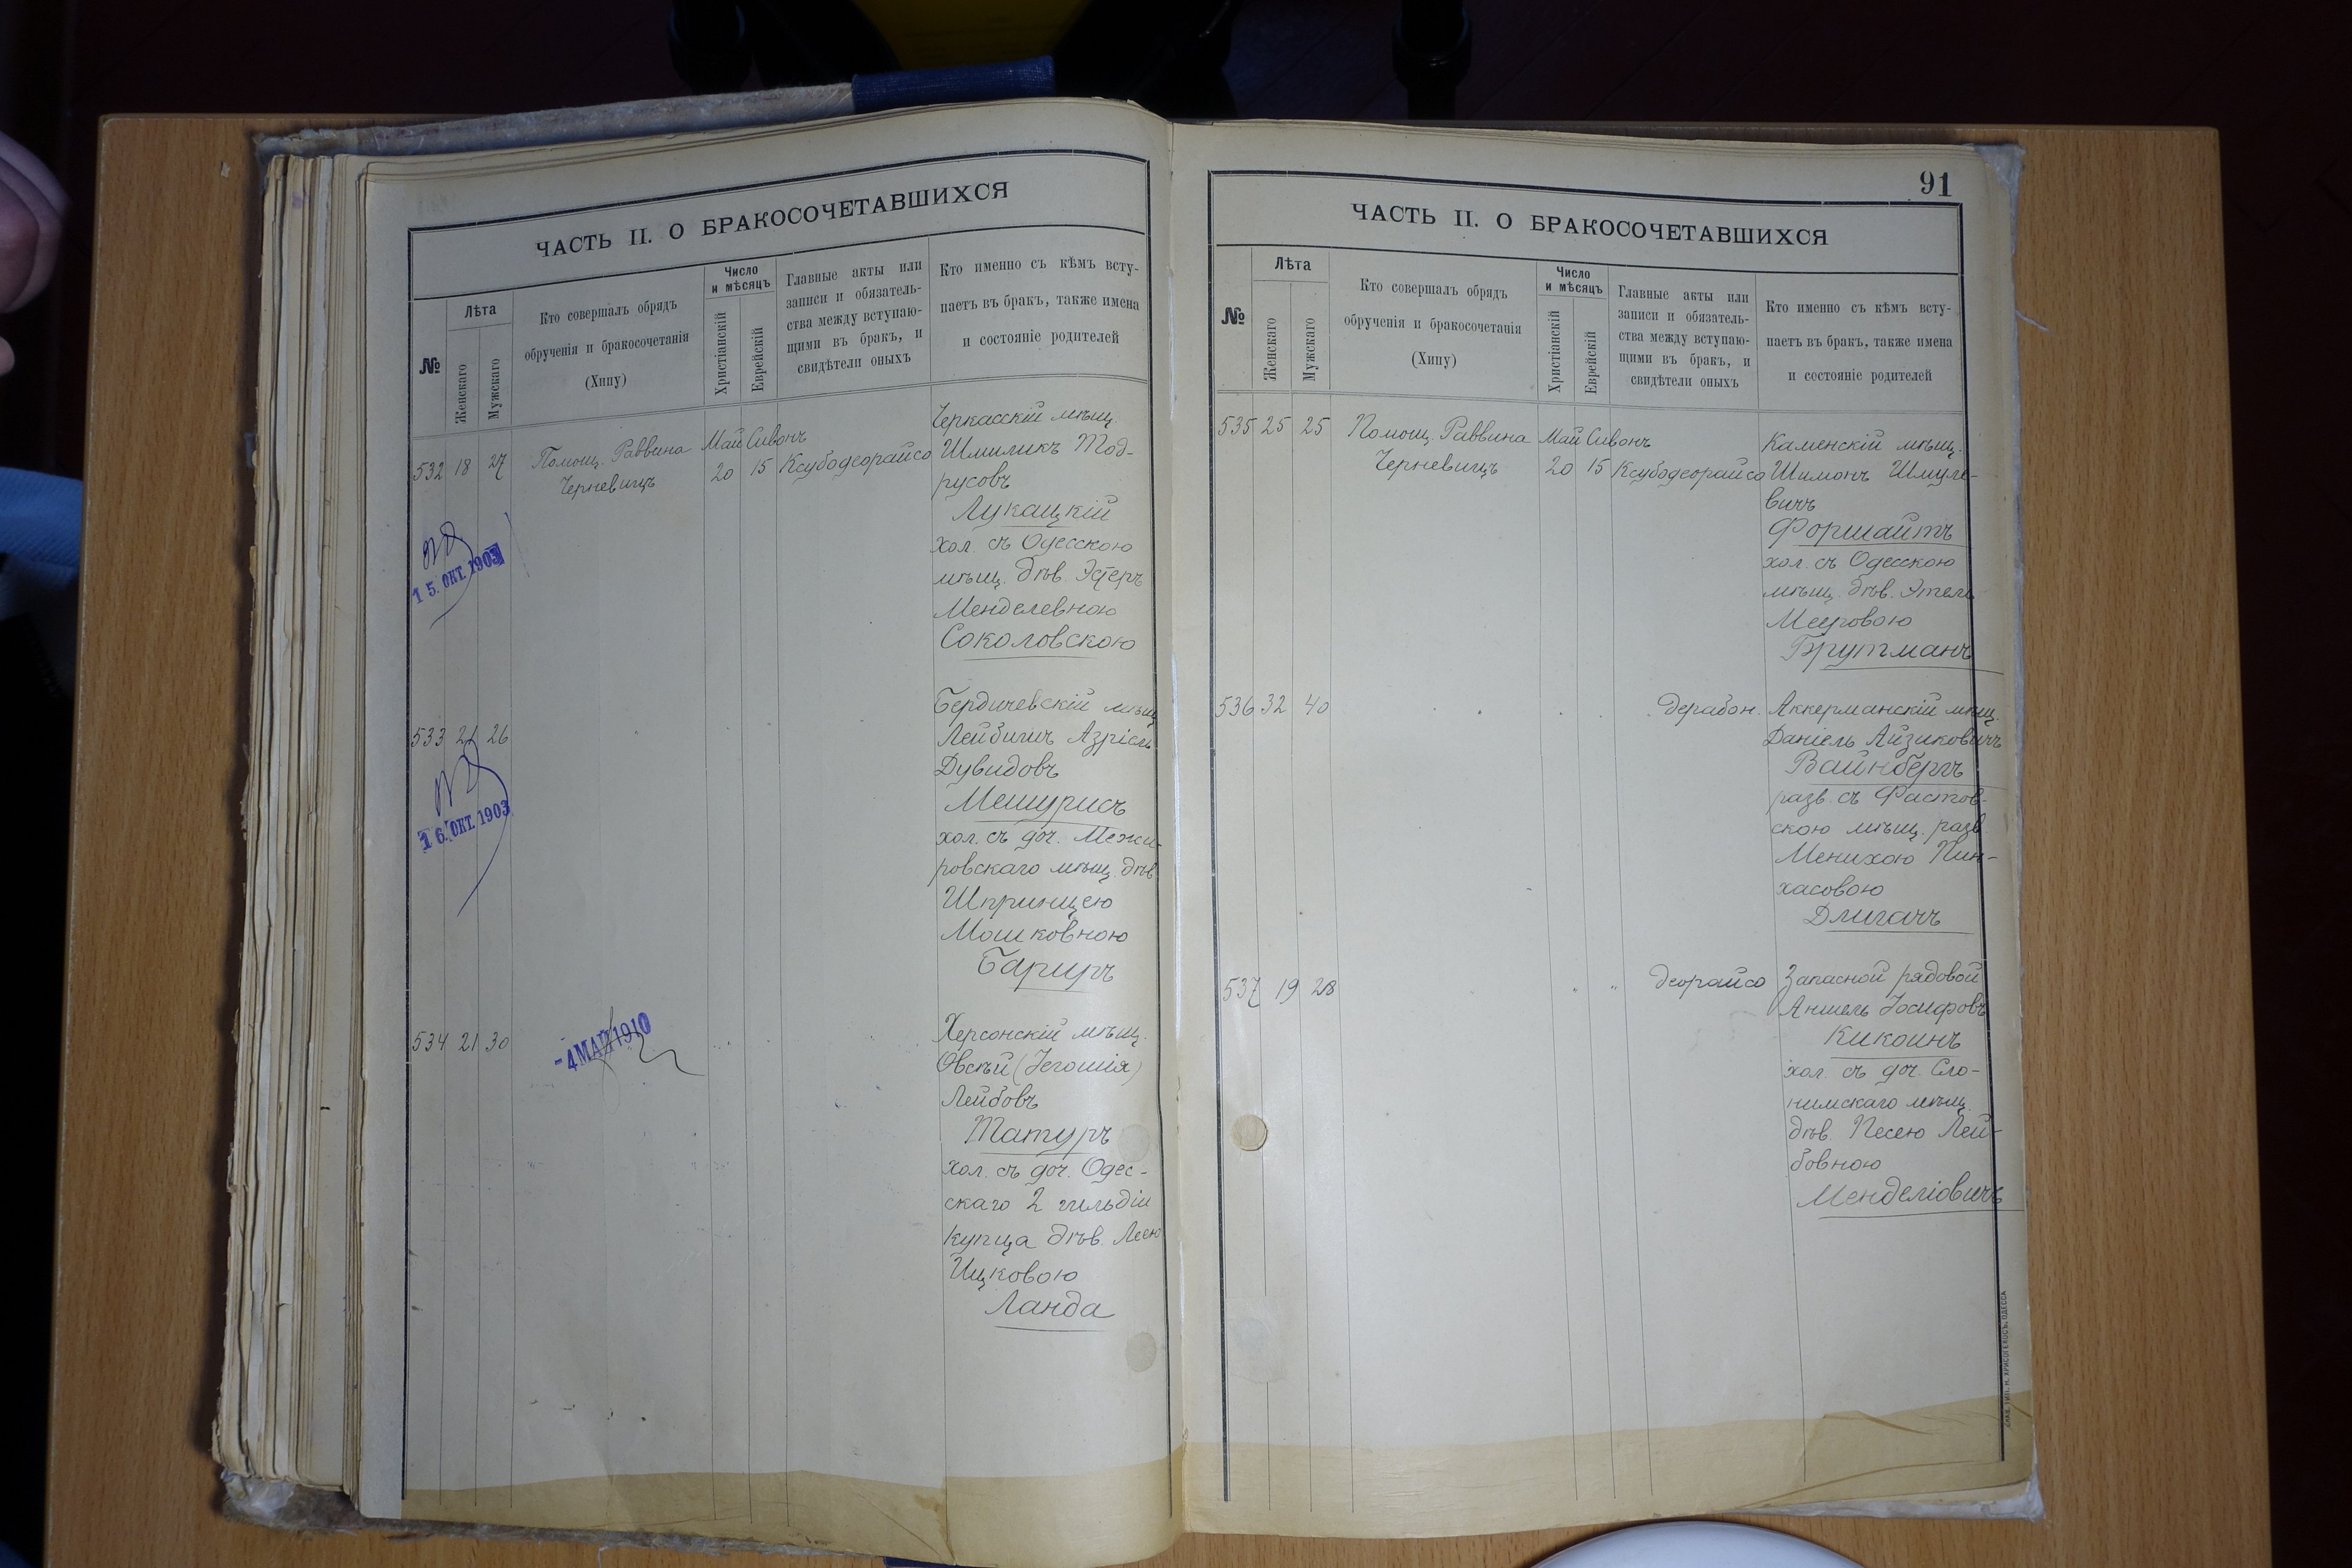 ЧАСТЬ II. О БРАКОСОЧЕТАВШИХСЯ
№
Лѣта
Женскаго
Мужскаго
Кто совершалъ обрядъ
обрученія и бракосочетанія
(Хипу)
Число
и мѣсяцъ
Христіанскій
Еврейскій
Главные акты или
записи и обязатель-
ства между вступаю-
щими въ бракъ, и
свидѣтели оныхъ
Кто именно съ кѣмъ всту-
паетъ въ бракъ, также имена
и состояніе родителей
532 18 27
Помощ. Раввина
Черневицъ
Май Сивонъ
20 15 Ксубодеорайсо
Черкасскій мѣщ.
Шмиликъ Тод-
русовъ
Лукацкій
хол. съ Одесскою
мѣщ. дѣв. Эстеръ
Менделевною
Соколовскою
15. ОКТ. 1903
533 21 26
Бердичевскій мѣщ
Лейбишъ Азріель
Дувидовъ
Мешурисъ
хол. съ доч. Межи-
ровскаго мѣщ. дѣв
Шпринцею
Мошковною
Бариръ
16. ОКТ. 1903
534 21 30
-4 МАЙ 1910
Херсонскій мѣщ.
Овсѣй (Іегошія)
Лейбовъ
Татуръ
хол. съ доч. Одес-
скаго 2 гильдіи
купца дѣв. Леею
Ицковою
Ланда
91
ЧАСТЬ II. О БРАКОСОЧЕТАВШИХСЯ
№
Лѣта
Женскаго
Мужскаго
Кто совершалъ обрядъ
обрученія и бракосочетанія
(Хипу)
Число
и мѣсяцъ
Христіанскій
Еврейскій
Главные акты или
записи и обязатель-
ства между вступаю-
щими въ бракъ, и
свидѣтели оныхъ
Кто именно съ кѣмъ всту-
паетъ въ бракъ, также имена
и состояніе родителей
535 25 25
Помощ. Раввина
Черневицъ
Май Сивонъ
20 15 Ксубодеорайсо
Каменскій мѣщ.
Шимонъ Шмуле-
вичъ
Форшайтъ
хол. съ Одесскою
мѣщ. дѣв. Этель
Мееровою
Брутманъ
536 32 40
дерабон.
Аккерманскій мѣщ.
Даніель Айзиковичъ
Вайнбергъ
разв. съ Фастов-
скою мѣщ. разв.
Менихою Пин-
хасовою
Длигачъ
537 19 28
" " деорайсо
Запасной рядовой
Аншель Іосифовъ
Кикоинъ
хол. съ доч. Сло-
нимскаго мѣщ.
дѣв. Песею Лей-
бовною
Менделіовичъ
СЛАВ. ТИП. Н. ХРИСОГЕЛОСЪ, ОДЕССА